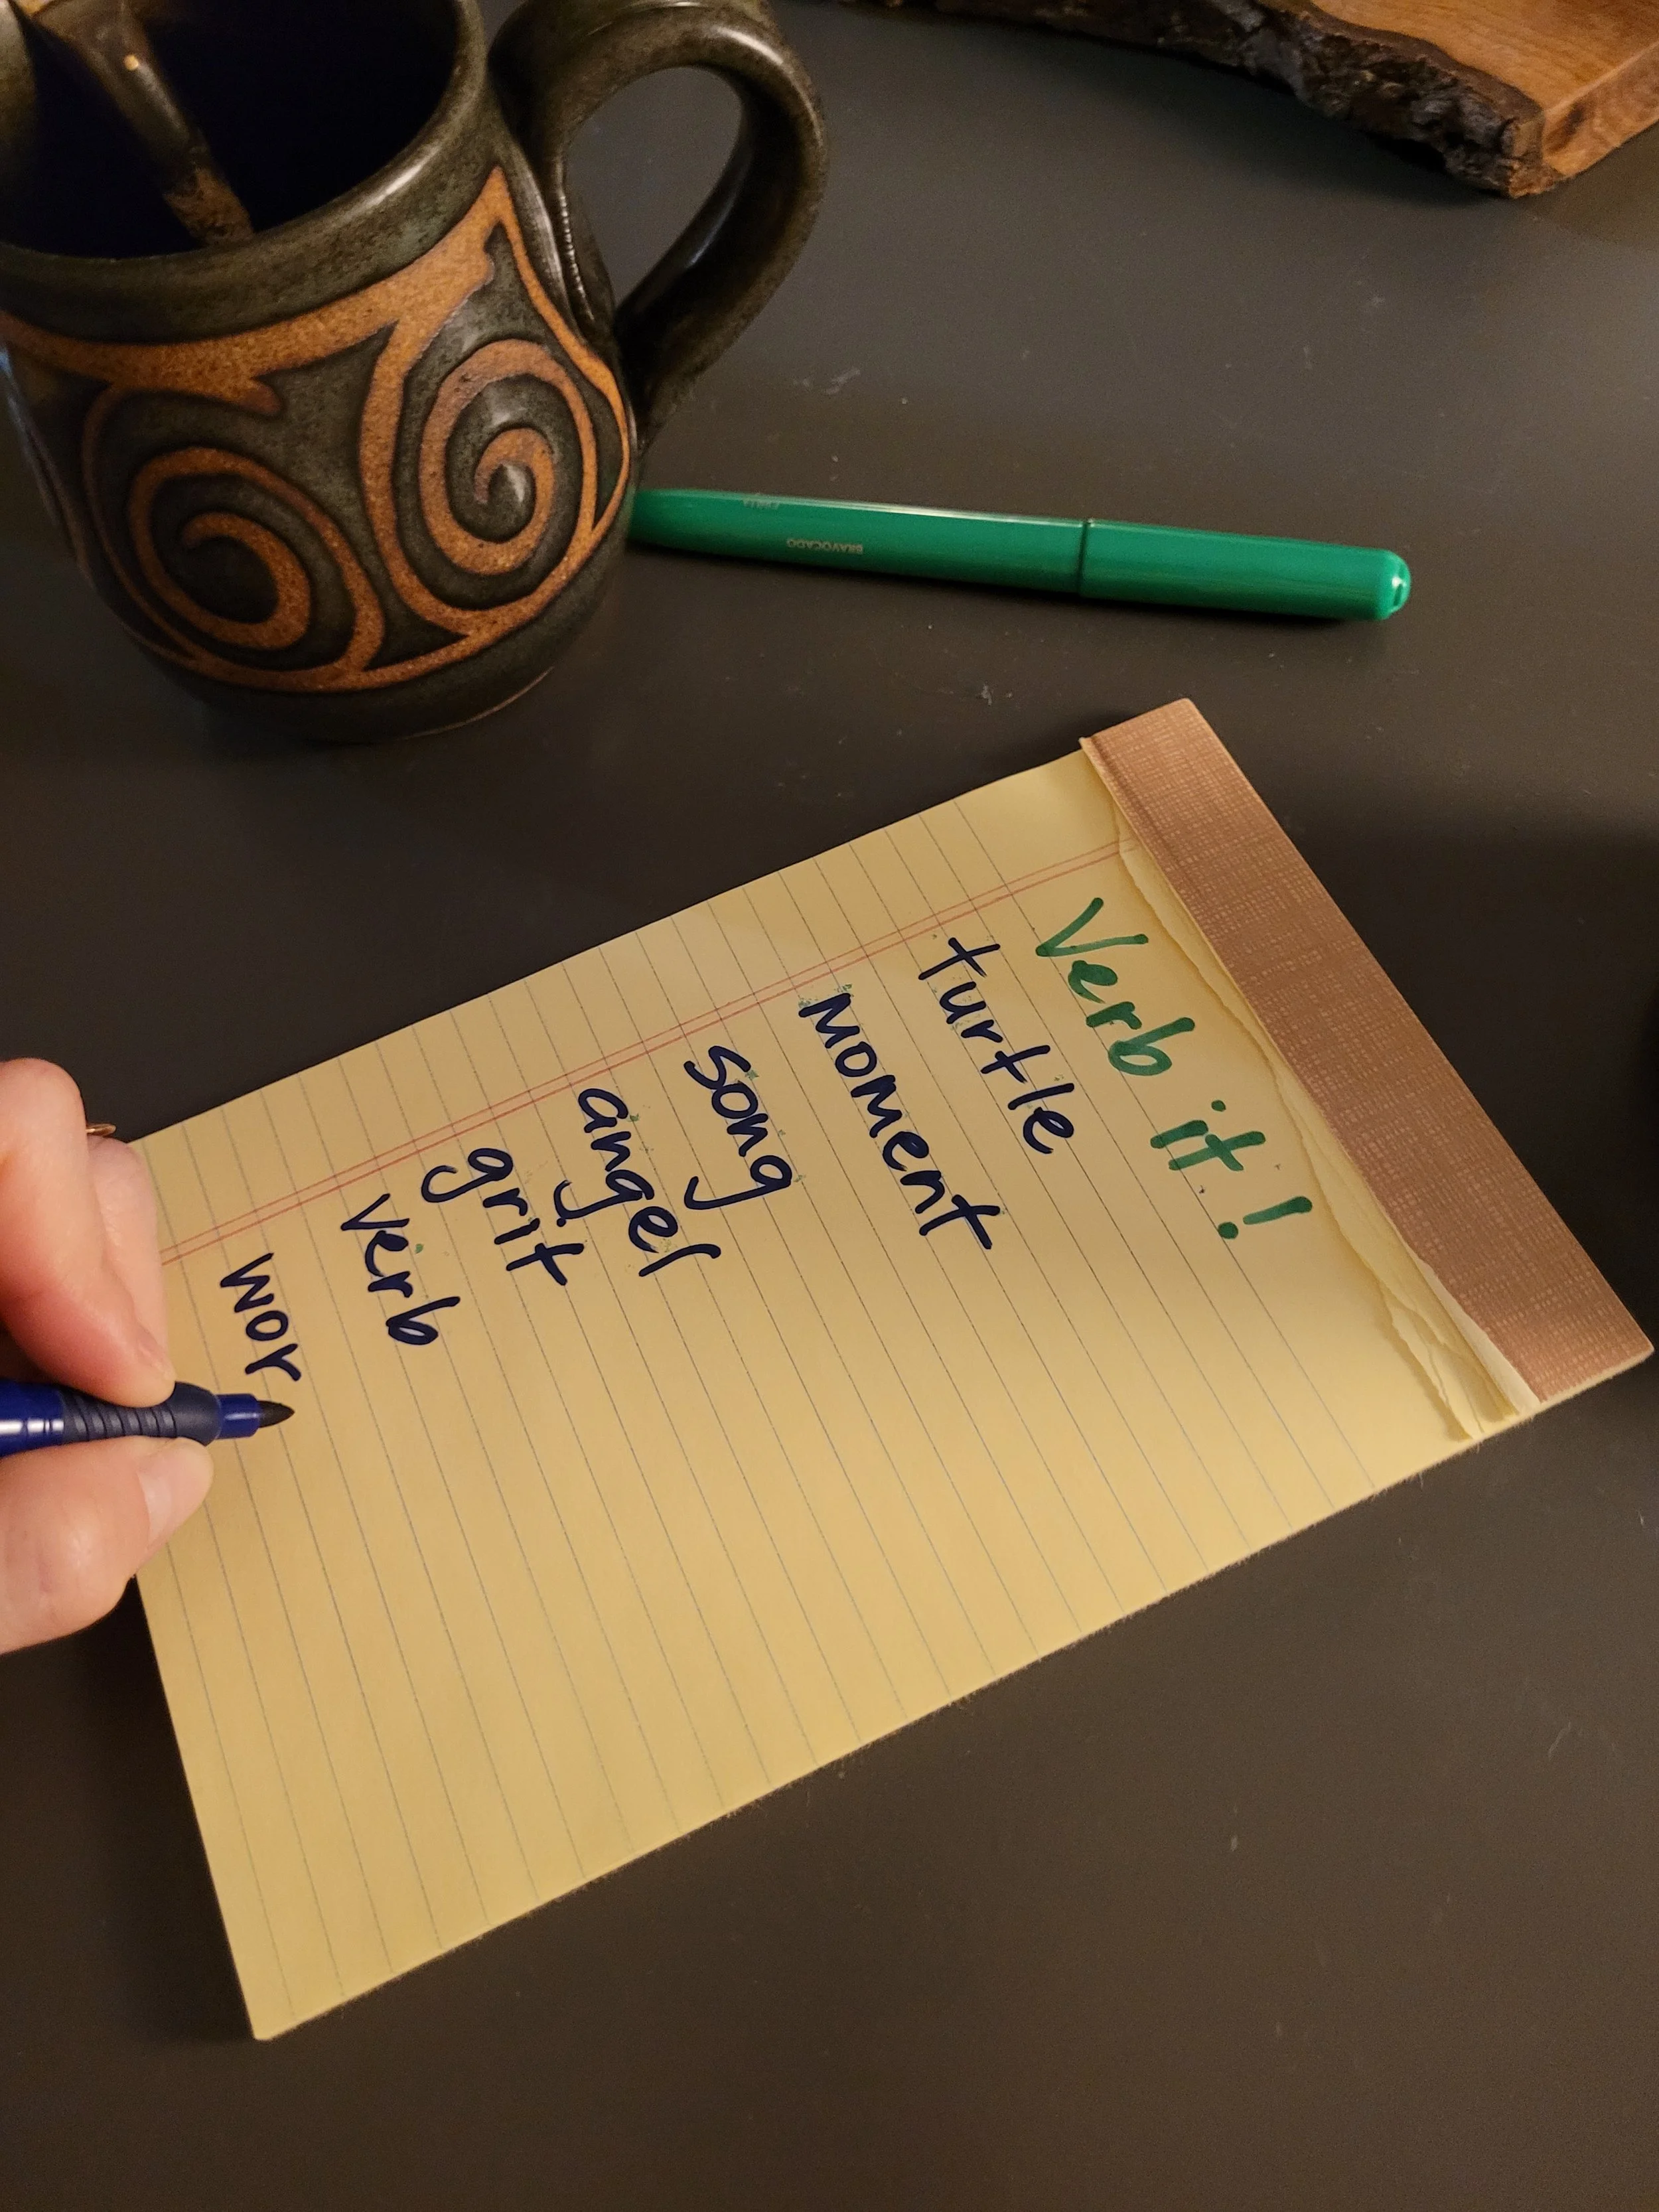 Verb it!
turtle
moment
song
anger
grit
verb
wor
BRAVOCADO